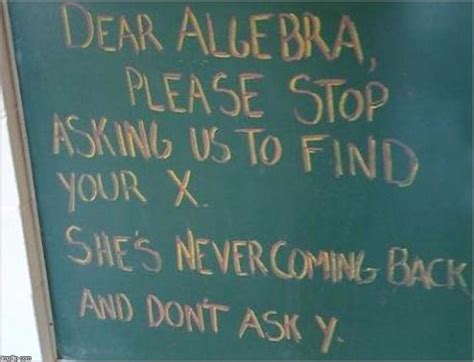 DEAR ALGEBRA,
PLEASE STOP
ASKING US TO FIND
YOUR X.
SHE'S NEVER COMING BACK
AND DON'T ASK Y.
imgflip.com